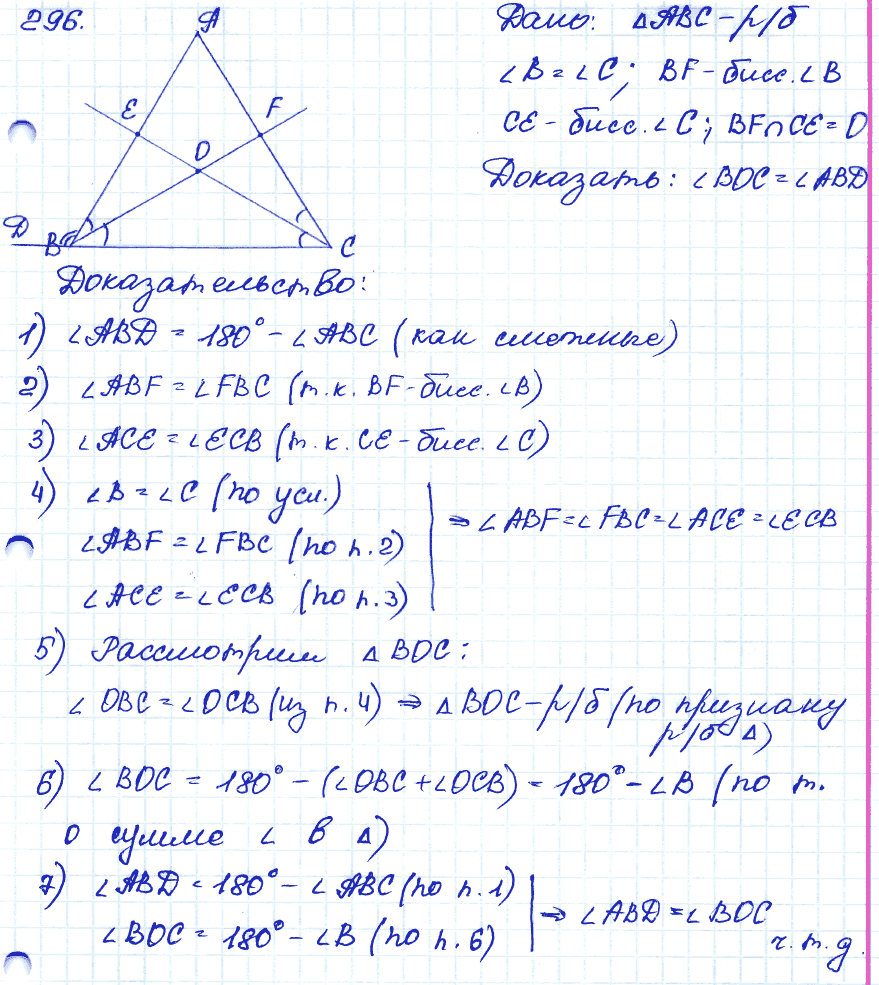 296.
A
Дано: △ABC - р/б
∠B = ∠C; BF - бисс. ∠B
E F
CE - бисс. ∠C; BF∩CE = O
O
Доказать: ∠BOC = ∠ABD
Д B C
Доказательство:
1) ∠ABD = 180° - ∠ABC (как смежные)
2) ∠ABF = ∠FBC (т.к. BF - бисс. ∠B)
3) ∠ACE = ∠ECB (т.к. CE - бисс. ∠C)
4) ∠B = ∠C (по усл.)
⇒ ∠ABF = ∠FBC = ∠ACE = ∠ECB
∠ABF = ∠FBC (по п.2)
∠ACE = ∠ECB (по п.3)
5) Рассмотрим △BOC:
∠OBC = ∠OCB (из п.4) ⇒ △BOC - р/б (по признаку
р/б △)
6) ∠BOC = 180° - (∠OBC + ∠OCB) = 180° - ∠B (по т.
о сумме ∠ в △)
7) ∠ABD = 180° - ∠ABC (по п.1)
⇒ ∠ABD = ∠BOC
∠BOC = 180° - ∠B (по п.6)
ч.т.д.